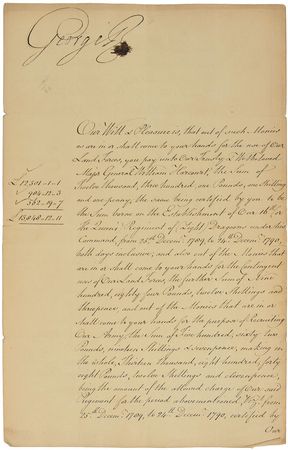 George R
Our Will & Pleasure is, that out of such Monies
as are in or shall come to your hands for the use of Our
Land Forces, you pay unto Our Trusty & Wellbeloved
Major General William Harcourt, the Sum of
£12,301-1-1
Twelve thousand, three hundred, one Pounds, one Shilling
984-12-3
and one penny, the same being certified by you to be
562-19-7
the Sum borne on the Establishment of Our 16th or
£13,848-12-11
the Queens Regiment of Light Dragoons under his
Command, from 25th Decemr. 1789, to 24th Decemr. 1790,
both days inclusive; and also out of the Monies that
are in or shall come to your hands for the Contingent
use of Our Land Forces, the further Sum of Nine
hundred, eighty four Pounds, twelve Shillings and
threepence, and out of the Monies that are in or
shall come to your hands for the purpose of Recruiting
Our Army, the Sum of Five hundred, sixty two
Pounds, nineteen Shillings & sevenpence, making in
the whole, Thirteen thousand, eight hundred, forty
eight Pounds, twelve Shillings and elevenpence,
being the amount of the allowed charge of Our said
Regiment for the period abovementioned, Vizt. from
25th Decemr. 1789, to 24th Decemr. 1790, certified by
Our